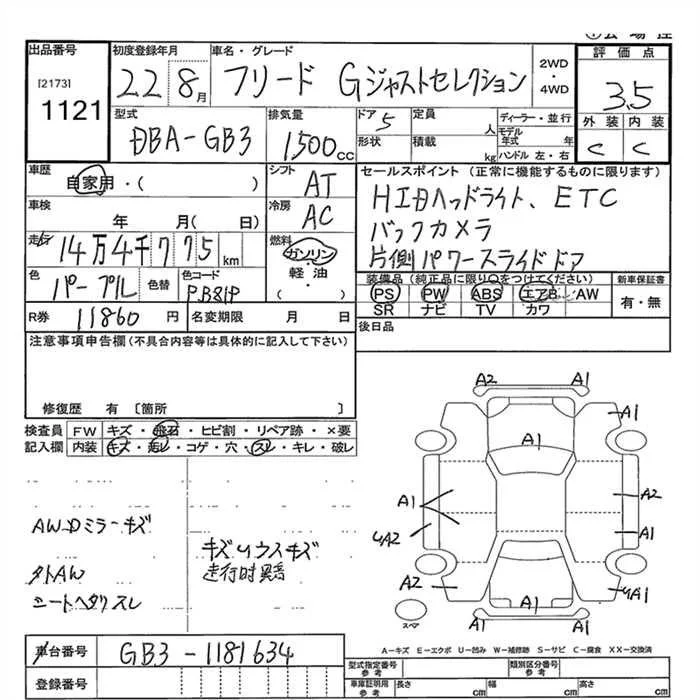 出品番号
[2173]
1121
初度登録年月
22 8月
車名・グレード
フリード Gジャストセレクション
2WD
・
4WD
評価点
3.5
外装 内装
C C
型式
DBA-GB3
排気量
1500cc
ドア 5
形状
定員
人
積載
kg
ディーラー・並行
モデル
年式 年
ハンドル 左・右
車歴
自家用・( )
シフト
AT
セールスポイント (正常に機能するものに限ります)
HIDヘッドライト、ETC
バックカメラ
片側パワースライドドア
車検
年 月( 日)
冷房
AC
走行
14万4千775km
燃料
ガソリン
軽油
( ・ )
色
パープル
色替
色コード
PB81P
装備品(純正品に限り○をつけてください)
PS PW ABS エアB AW
SR ナビ TV カワ
新車保証書
有・無
R券 11860 円
名変期限 月 日
後日品
注意事項申告欄(不具合内容等は具体的に記入して下さい)
修復歴 有 〔箇所 〕
検査員
記入欄
FW キズ・飛石・ヒビ割・リペア跡・×要
内装 キズ・汚レ・コゲ・穴・スレ・キレ・破レ
AW Dミラーキズ
キズ・ウスキズ
走行時異音
タトAW
シートヘタリスレ
A2 A1
A1
A1
A1
A2
A1
A2
A1
A2
A1
A1
A1
A1
スペア
A-キズ E-エクボ U-凹み W-補修跡 S-サビ C-腐食 XX-交換済
車台番号
GB3-1181634
登録番号
型式指定番号
参考
類別区分番号
参考
車庫証明用
参考
長さ cm
幅 cm
高さ cm